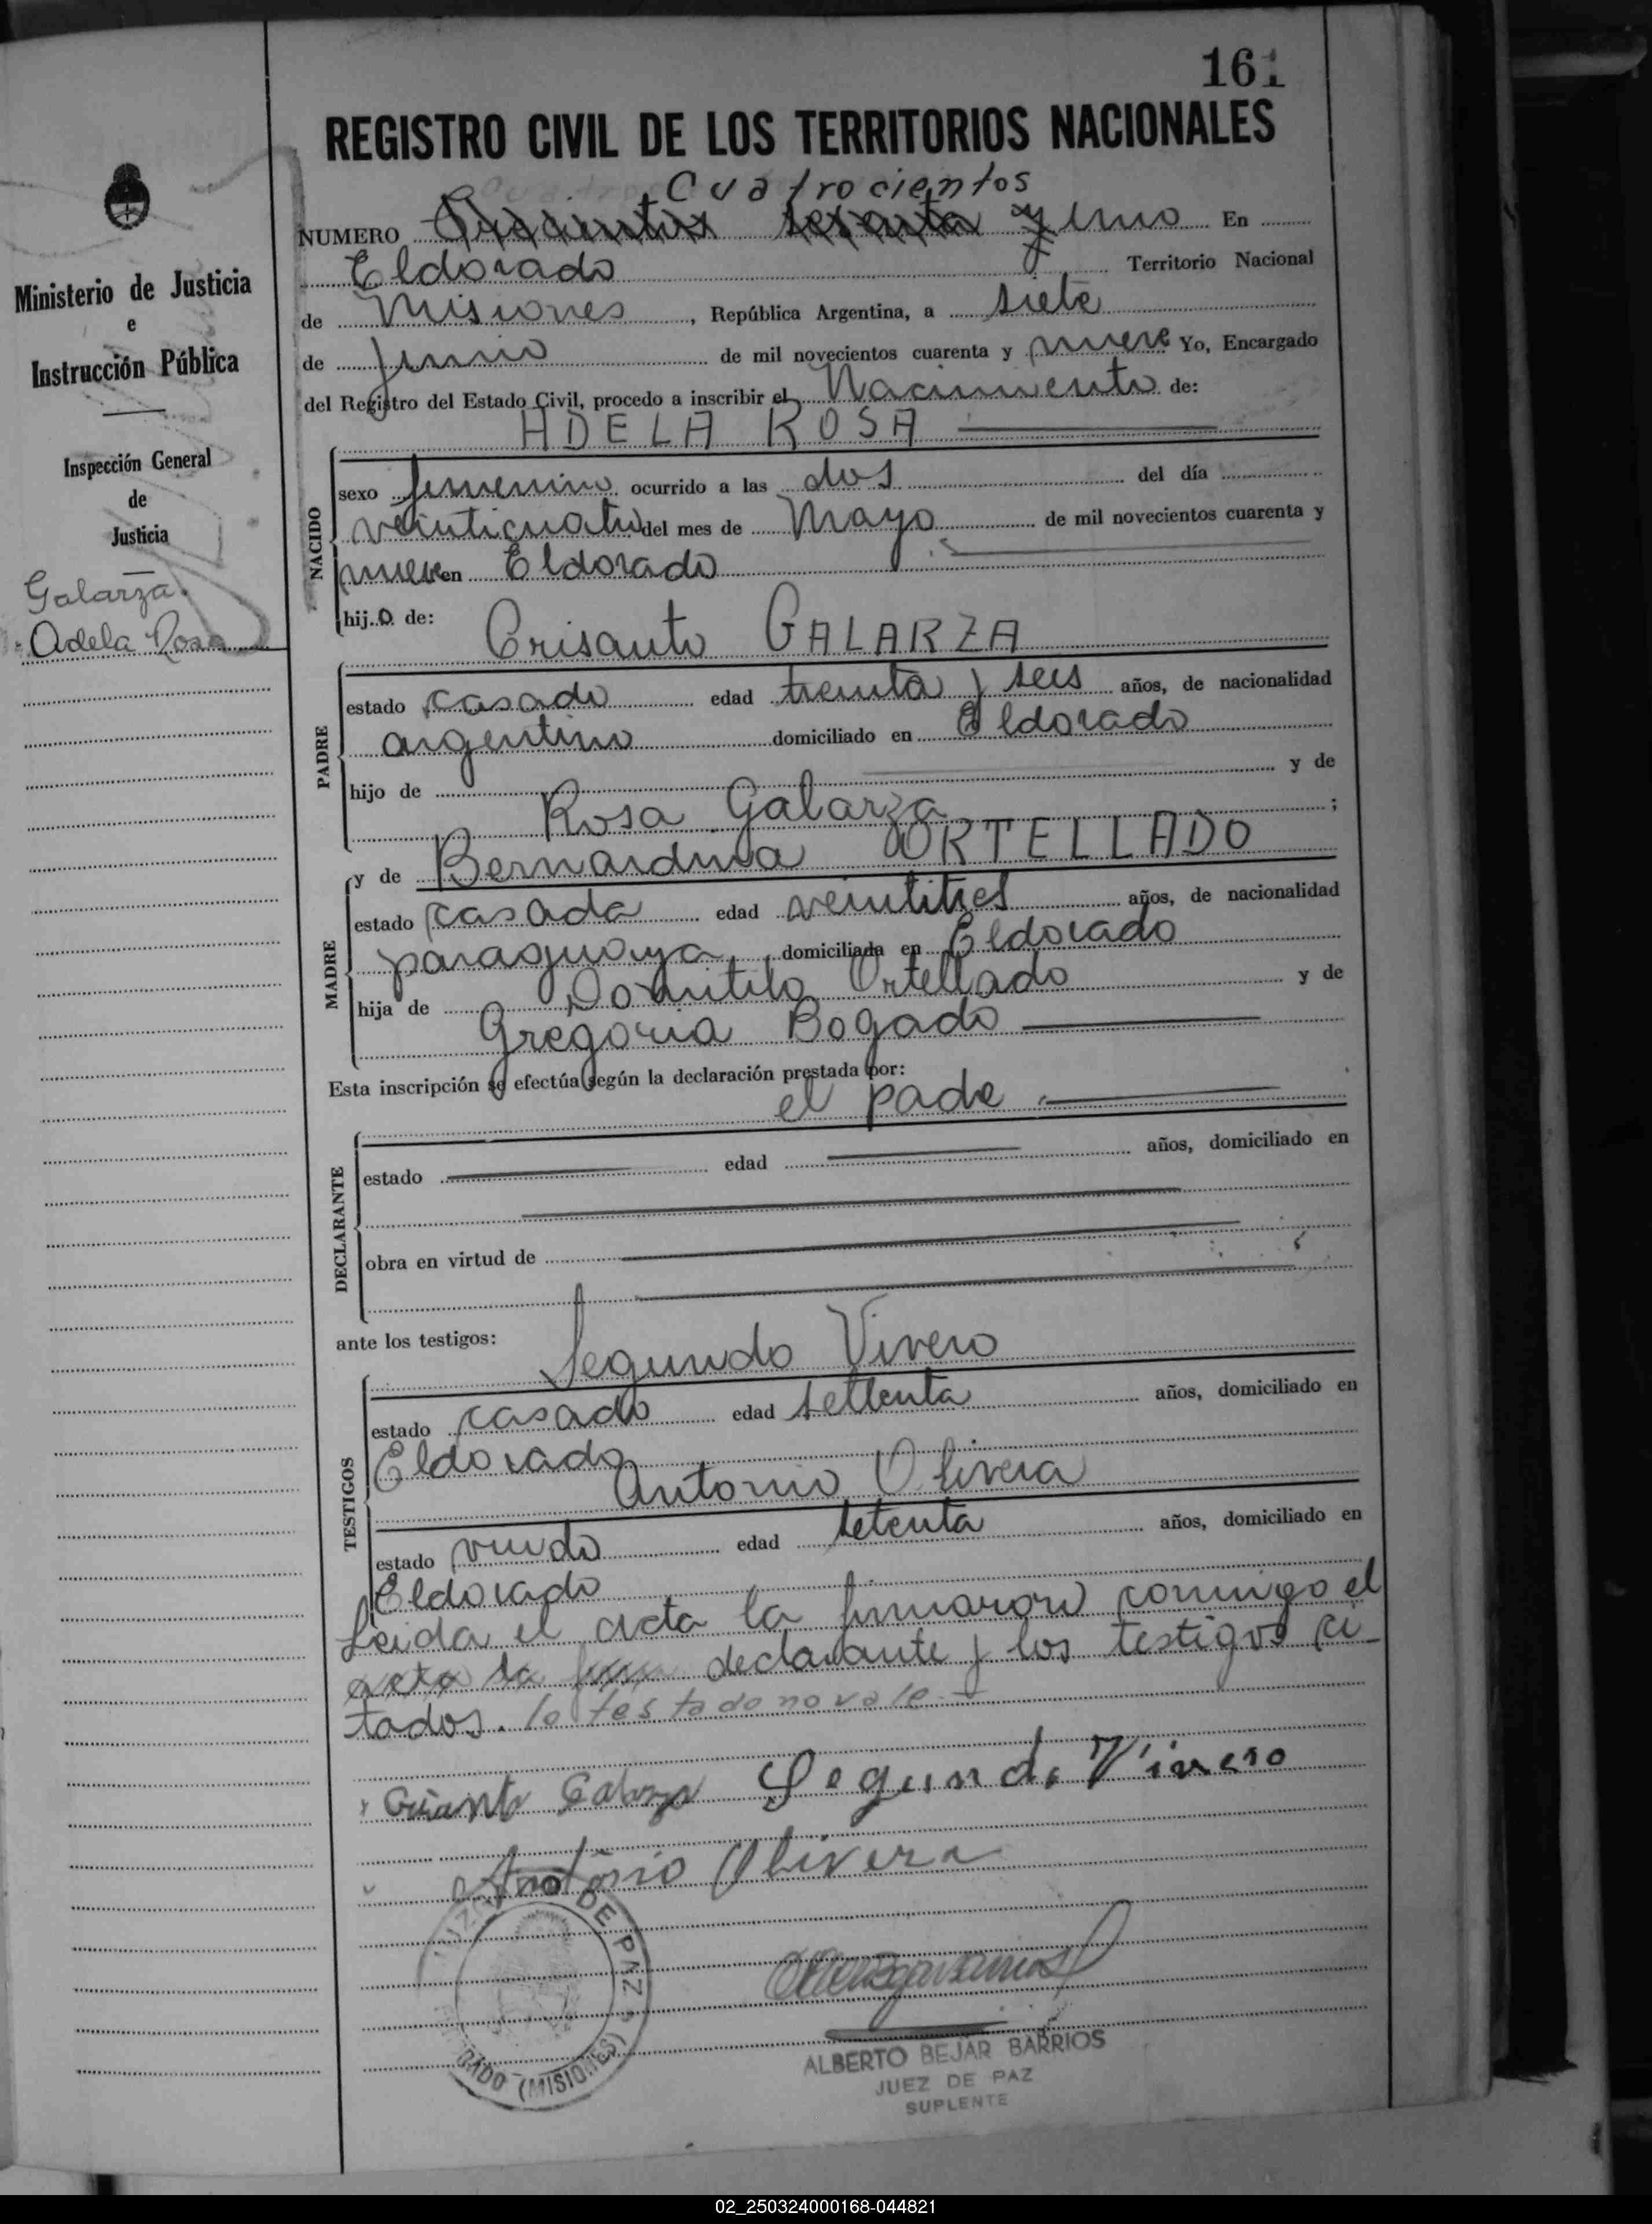 161
REGISTRO CIVIL DE LOS TERRITORIOS NACIONALES
Cuatrocientos
NUMERO Trescientos sesenta y uno En
Eldorado Territorio Nacional
de Misiones, República Argentina, a siete
de Junio de mil novecientos cuarenta y nueve Yo, Encargado
del Registro del Estado Civil, procedo a inscribir el Nacimiento de:
ADELA ROSA
NACIDO
sexo femenino ocurrido a las dos del día
veinticuatro del mes de Mayo de mil novecientos cuarenta y
nueve en Eldorado
hij.o. de: Crisanto GALARZA
PADRE
estado casado edad treinta y seis años, de nacionalidad
argentino domiciliado en Eldorado
hijo de y de
Rosa Galarza ;
y de Bernardina ORTELLADO
MADRE
estado casada edad veintitres años, de nacionalidad
paraguaya domiciliada en Eldorado
hija de Domitilo Ortellado y de
Gregoria Bogado
Esta inscripción se efectúa según la declaración prestada por:
el padre
DECLARANTE
estado edad años, domiciliado en
obra en virtud de
ante los testigos: Segundo Vivero
TESTIGOS
estado casado edad settenta años, domiciliado en
Eldorado
Antonio Olivera
estado viudo edad setenta años, domiciliado en
Eldorado
Leida el acta la firmaron conmigo el
acta la declarante y los testigos ci-
tados. lo testado no vale.-
Crisanto Galarza Segundo Vivero
Antonio Olivera
JUZGADO DE PAZ
(MISIONES)
ALBERTO BEJAR BARRIOS
JUEZ DE PAZ
SUPLENTE
Ministerio de Justicia
e
Instrucción Pública
Inspección General
de
Justicia
Galarza.
Adela Rosa
02_250324000168-044821